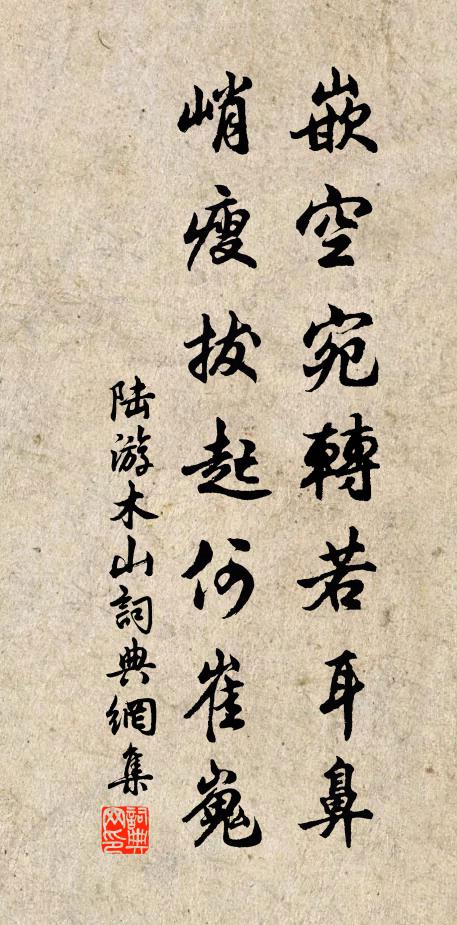 嵌空宛轉若耳鼻
峭瘦拔起何崔嵬
陆游木山詞典網集
詞典网印